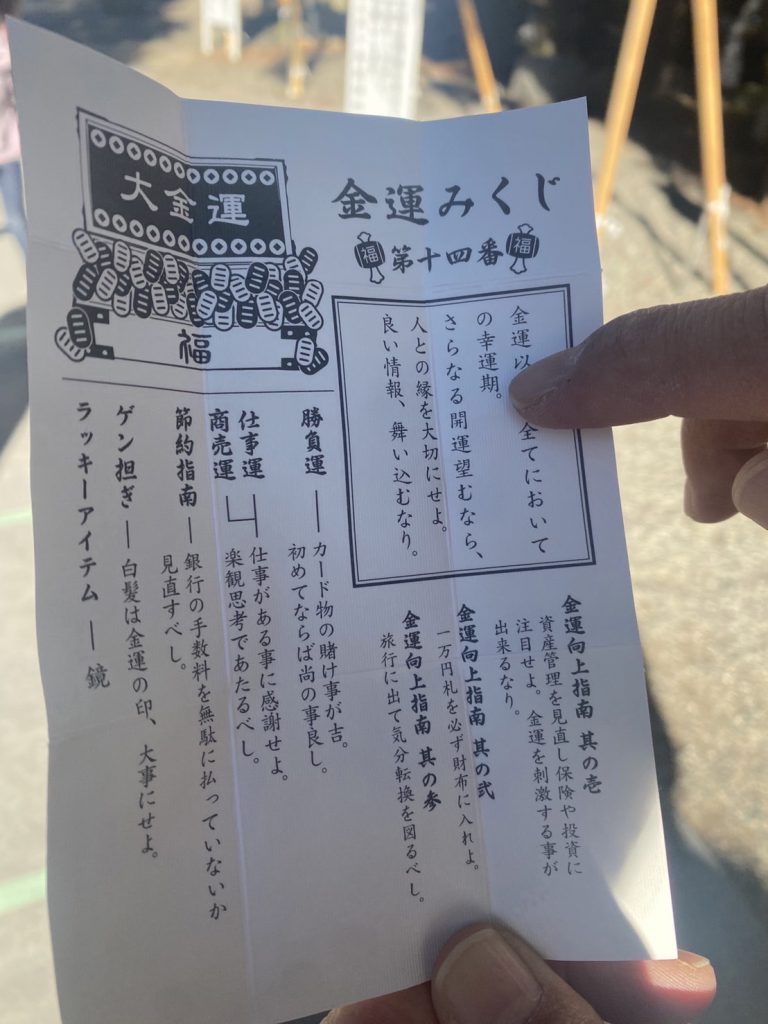 金運みくじ
福 第十四番 福
大金運
福
金運以 全てにおいて
の幸運期。
さらなる開運望むなら、
人との縁を大切にせよ。
良い情報、舞い込むなり。
金運向上指南 其の壱
資産管理を見直し保険や投資に
注目せよ。金運を刺激する事が
出来るなり。
金運向上指南 其の弐
一万円札を必ず財布に入れよ。
金運向上指南 其の参
旅行に出て気分転換を図るべし。
勝負運 ― カード物の賭け事が吉。
初めてならば尚の事良し。
仕事運
商売運
仕事がある事に感謝せよ。
楽観思考であたるべし。
節約指南 ― 銀行の手数料を無駄に払っていないか
見直すべし。
ゲン担ぎ ― 白髪は金運の印、大事にせよ。
ラッキーアイテム ― 鏡